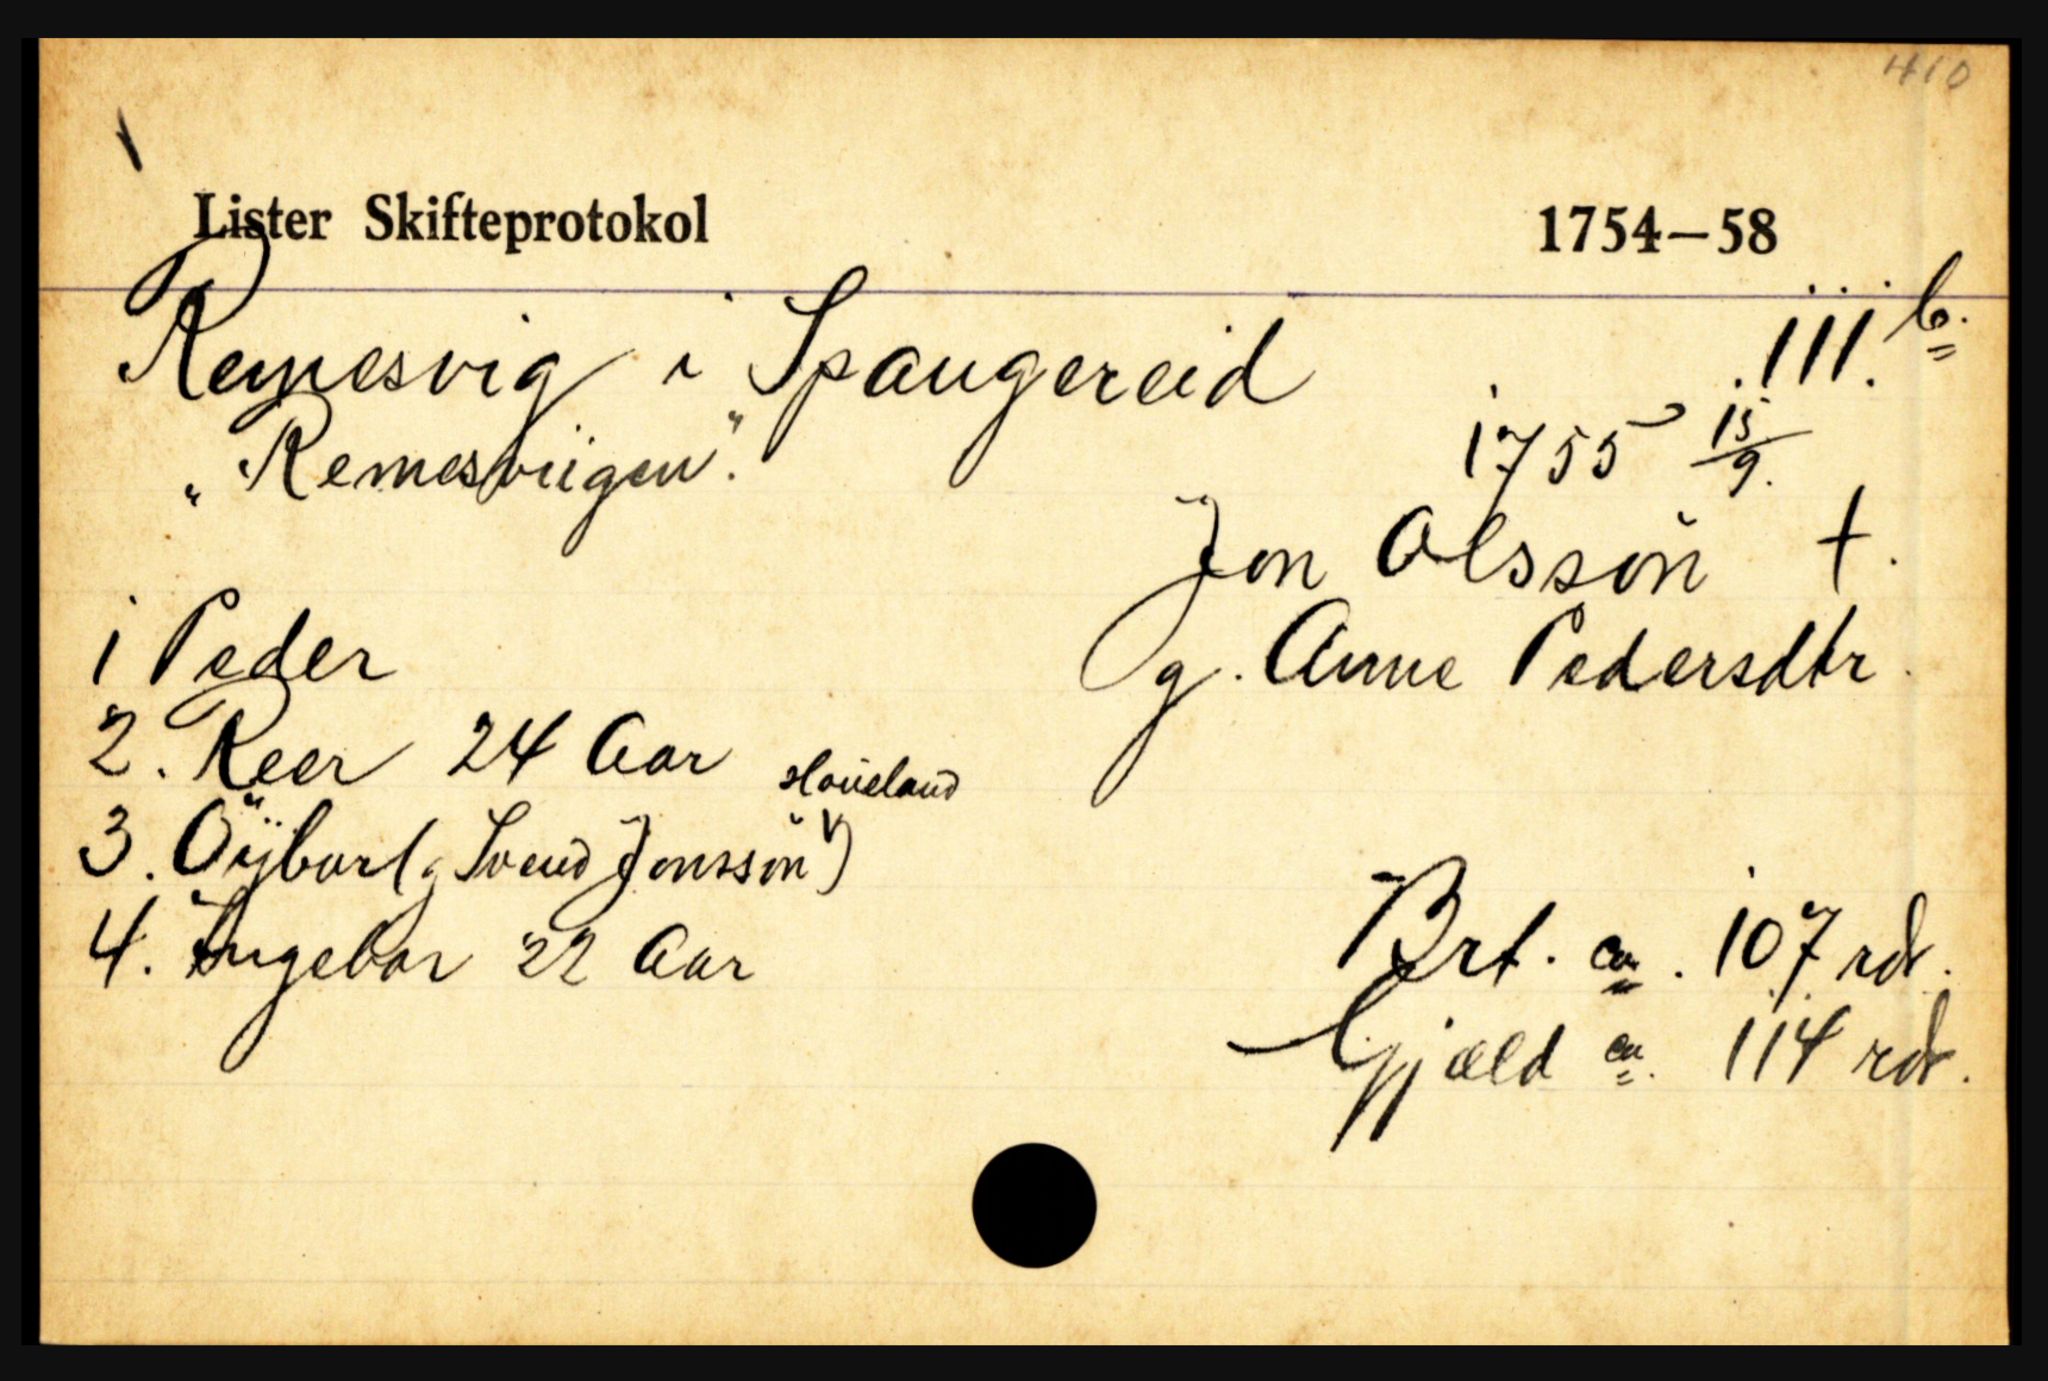 410
Lister Skifteprotokol 1754—58
Remesvig i Spangereid 111 b.
"Remesviigen". 1755 15/9.
Jon Olssøn †.
g. Anne Pedersdtr.
1 Peder
2. Reer 24 Aar
3. Øÿbor (g Svend Jonssøn Haueland)
4. Ingebor 22 Aar
Brt. ca. 107 rdr.
Gjæld ca. 114 rdr.